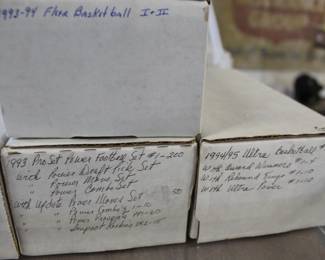 1993-94 Flera Basketball I + II
1993 Pro Set Power Football Set #1-200
with Power Draft Pick Set
" Power Moves Set
" Power Combo Set
with Update Power Moves Set
" Power Combos 1-10
" Power Prospects
50
1994/95 Ultra Basketball
with Award Winners #1-4
with Rebound Kings #1-10
with Ultra Power #1-10